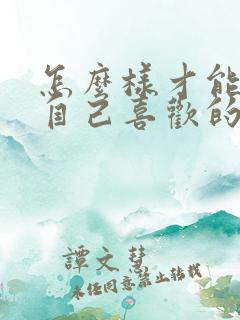 怎麼樣才能
自己喜歡的
譚文慧
未經同意禁止轉載